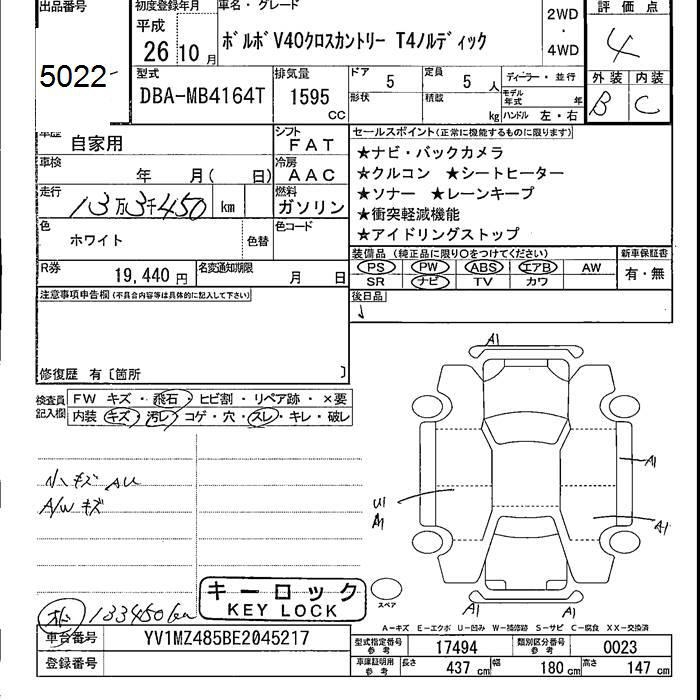 出品番号
5022
初度登録年月
平成
26年10月
車名・グレード
ボルボ V40クロスカントリー T4ノルディック
2WD
・
4WD
評価点
4
外装 内装
B C
型式
DBA-MB4164T
排気量
1595
CC
ドア 5
形状
定員 5 人
積載 kg
ディーラー・並行
モデル年式 年
ハンドル 左・右
車歴 自家用
シフト
FAT
車検 年 月( 日)
冷房
AAC
走行 13万3千450 km
燃料
ガソリン
色 ホワイト 色替
色コード
R券 19,440 円
名変通知期限 月 日
セールスポイント(正常に機能するものに限ります)
★ナビ・バックカメラ
★クルコン ★シートヒーター
★ソナー ★レーンキープ
★衝突軽減機能
★アイドリングストップ
装備品 (純正品に限り○をつけてください)
PS PW ABS エアB AW
SR ナビ TV カワ
新車保証書
有・無
後日品
注意事項申告欄(不具合内容等は具体的に記入して下さい)
修復歴 有〔箇所 〕
検査員記入欄
FW キズ・飛石・ヒビ割・リペア跡・×要
内装 キズ・汚レ・コゲ・穴・スレ・キレ・破レ
小キズ AU
A/W キズ
133450km
キーロック
KEY LOCK
A1
A1
U1
A1
A1
A1
A1
スペア
A-キズ E-エクボ U-凹み W-補修跡 S-サビ C-腐食 XX-交換済
車台番号 YV1MZ485BE2045217
登録番号
型式指定番号 参考 17494
類別区分番号 参考 0023
車庫証明用 参考 長さ 437 cm 幅 180 cm 高さ 147 cm